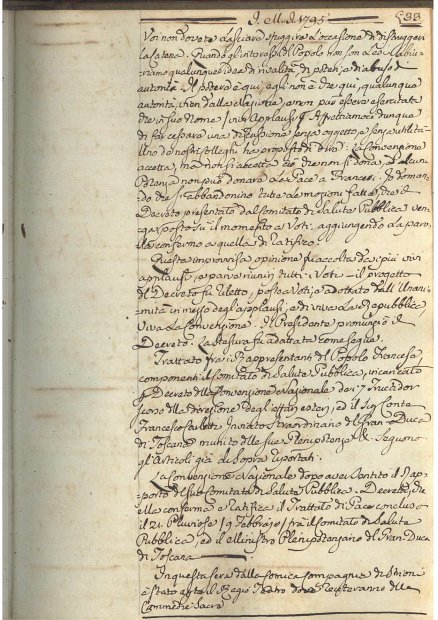 J. M. J. 1795
Voi non dovete lasciare sfuggire l'occasione di distruggere
la catena. Quando gl'interessi del Popolo
qualunque idea di rivalità, di poteri, e di abuso di
autorità. Il potere è qui, egli non è che qui, qualunque
autorità, vien dalla Nazione, e non può essere esercitata
che in suo Nome (vivi applausi). Affrettiamoci dunque
di far cessare una discussione senza oggetto, e senza utilità.
Uno de nostri colleghi ha proposto di dire: La Convenzione
accetta, ma non si accetta ciò che non si dona, e alcuna
Potenza non può donare la Pace a Francesi. Io doman-
do che si abbandonino tutte le mozioni fatte, che il
Decreto presentato dal Comitato di Salute Pubblica, ven-
ga posto su il momento a Voti, aggiungendo la paro-
la conferma a quella di ratifica.
Questa improvvisa opinione fu accolta da i più vivi
applausi, e parve riunir tutti i Voti. Il progetto
di Decreto fu riletto, posto a Voti, e adottato dall'unani-
mità in mezzo degli applausi, e di viva la Repubblica,
Viva la Convenzione. Il Presidente pronunziò il
Decreto. La stesura fu adottata come segue.
Trattato fra i Rappresentanti del Popolo Francese,
componenti il Comitato di Salute Pubblica, incaricato
p. Decreto della Convenzione Nazionale de 17 Fructidor
scorso della direzione degli affari esteri, ed il Sig. Conte
Francesco Carletti Inviato Straordinario del Gran Duca
di Toscana munito delle sue Plenipotenze &c. Seguono
gl'Articoli già di sopra riportati.
La Convenzione Nazionale dopo aver sentito il Rap-
porto del suo Comitato di Salute Pubblica. Decreta, che
ella conferma e ratifica il Trattato di Pace concluso
il 21 Pluvioso (9 Febbraio) fra il Comitato di Salute
Pubblica, ed il Ministro Plenipotenziario del Gran Duca
di Toscana
In questa sera dalla Comica Compagnia di
è stato aperto il Regio Teatro dove reciteranno delle
Commedie Sacre